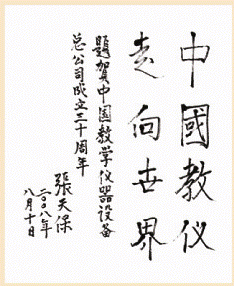 中國教仪
走向世界
题贺中国教学仪器设备
总公司成立三十周年
張天保
二〇〇八年
八月十日